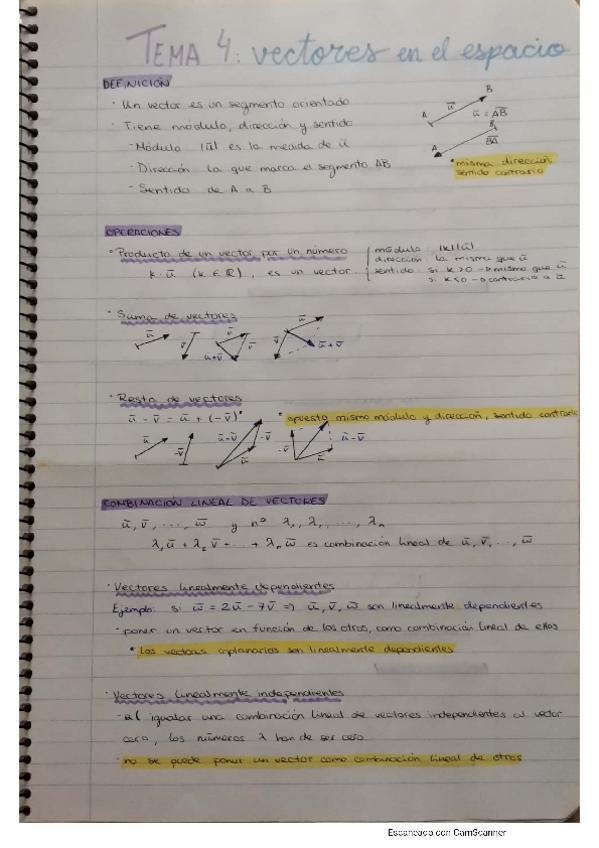 TEMA 4: vectores en el espacio
DEFINICIÓN
· Un vector es un segmento orientado
· Tiene módulo, dirección y sentido
- Módulo |ū| es la medida de ū
- Dirección la que marca el segmento AB
- Sentido de A a B
A ū B
ū = AB
B
BA
A
* misma dirección
sentido contrario
OPERACIONES
· Producto de un vector por un número
k · ū (k ∈ ℝ), es un vector
módulo |k||ū|
dirección la misma que ū
sentido si k > 0 → mismo que ū
si k < 0 → contrario a ū
· Suma de vectores
ū v̄ ū v̄ ū+v̄ ū v̄ ū+v̄
· Resta de vectores
ū - v̄ = ū + (-v̄)*
* opuesto mismo módulo y dirección, sentido contrario
ū -v̄ ū-v̄ -v̄ ū -v̄ ū ū-v̄
COMBINACIÓN LINEAL DE VECTORES
ū, v̄, ..., w̄ y nº λ₁, λ₁, ..., λₙ
λ₁ū + λ₂v̄ + ... + λₙw̄ es combinación lineal de ū, v̄, ..., w̄
· Vectores linealmente dependientes
Ejemplo: si w̄ = 2ū - 7v̄ => ū, v̄, w̄ son linealmente dependientes
- poner un vector en función de los otros, como combinación lineal de ellos
* Los vectores coplanarios son linealmente dependientes
· Vectores linealmente independientes
- al igualar una combinación lineal de vectores independientes al vector
cero, los números λ han de ser cero
- no se puede poner un vector como combinación lineal de otros
Escaneado con CamScanner